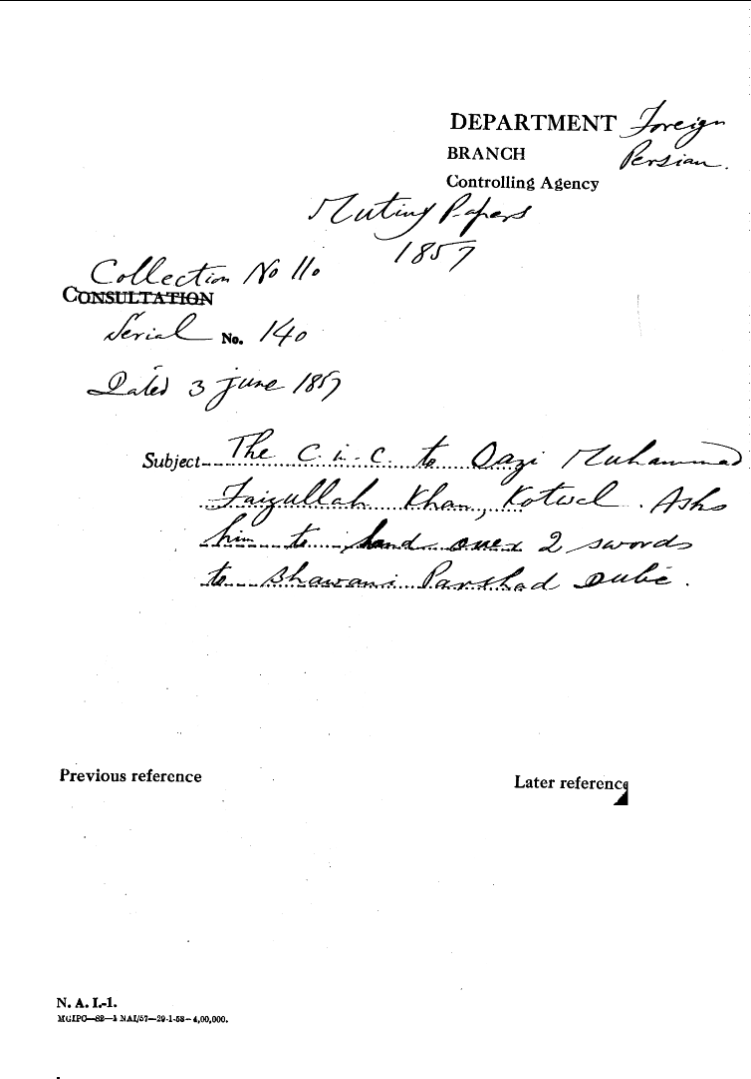 DEPARTMENT Foreign
BRANCH Persian.
Controlling Agency
Mutiny Papers
1857
Collection No 110
CONSULTATION
Serial No. 140
Dated 3 june 1857
Subject The C-in-C. to Qazi Muhammad
Faizullah Khan, Kotwal. Asks
him to hand over 2 swords
to Bhawani Parshad Dube.
Previous reference
Later reference
N. A. I.-1.
MGIPC—82—1 NAI/57—29-1-58—4,00,000.